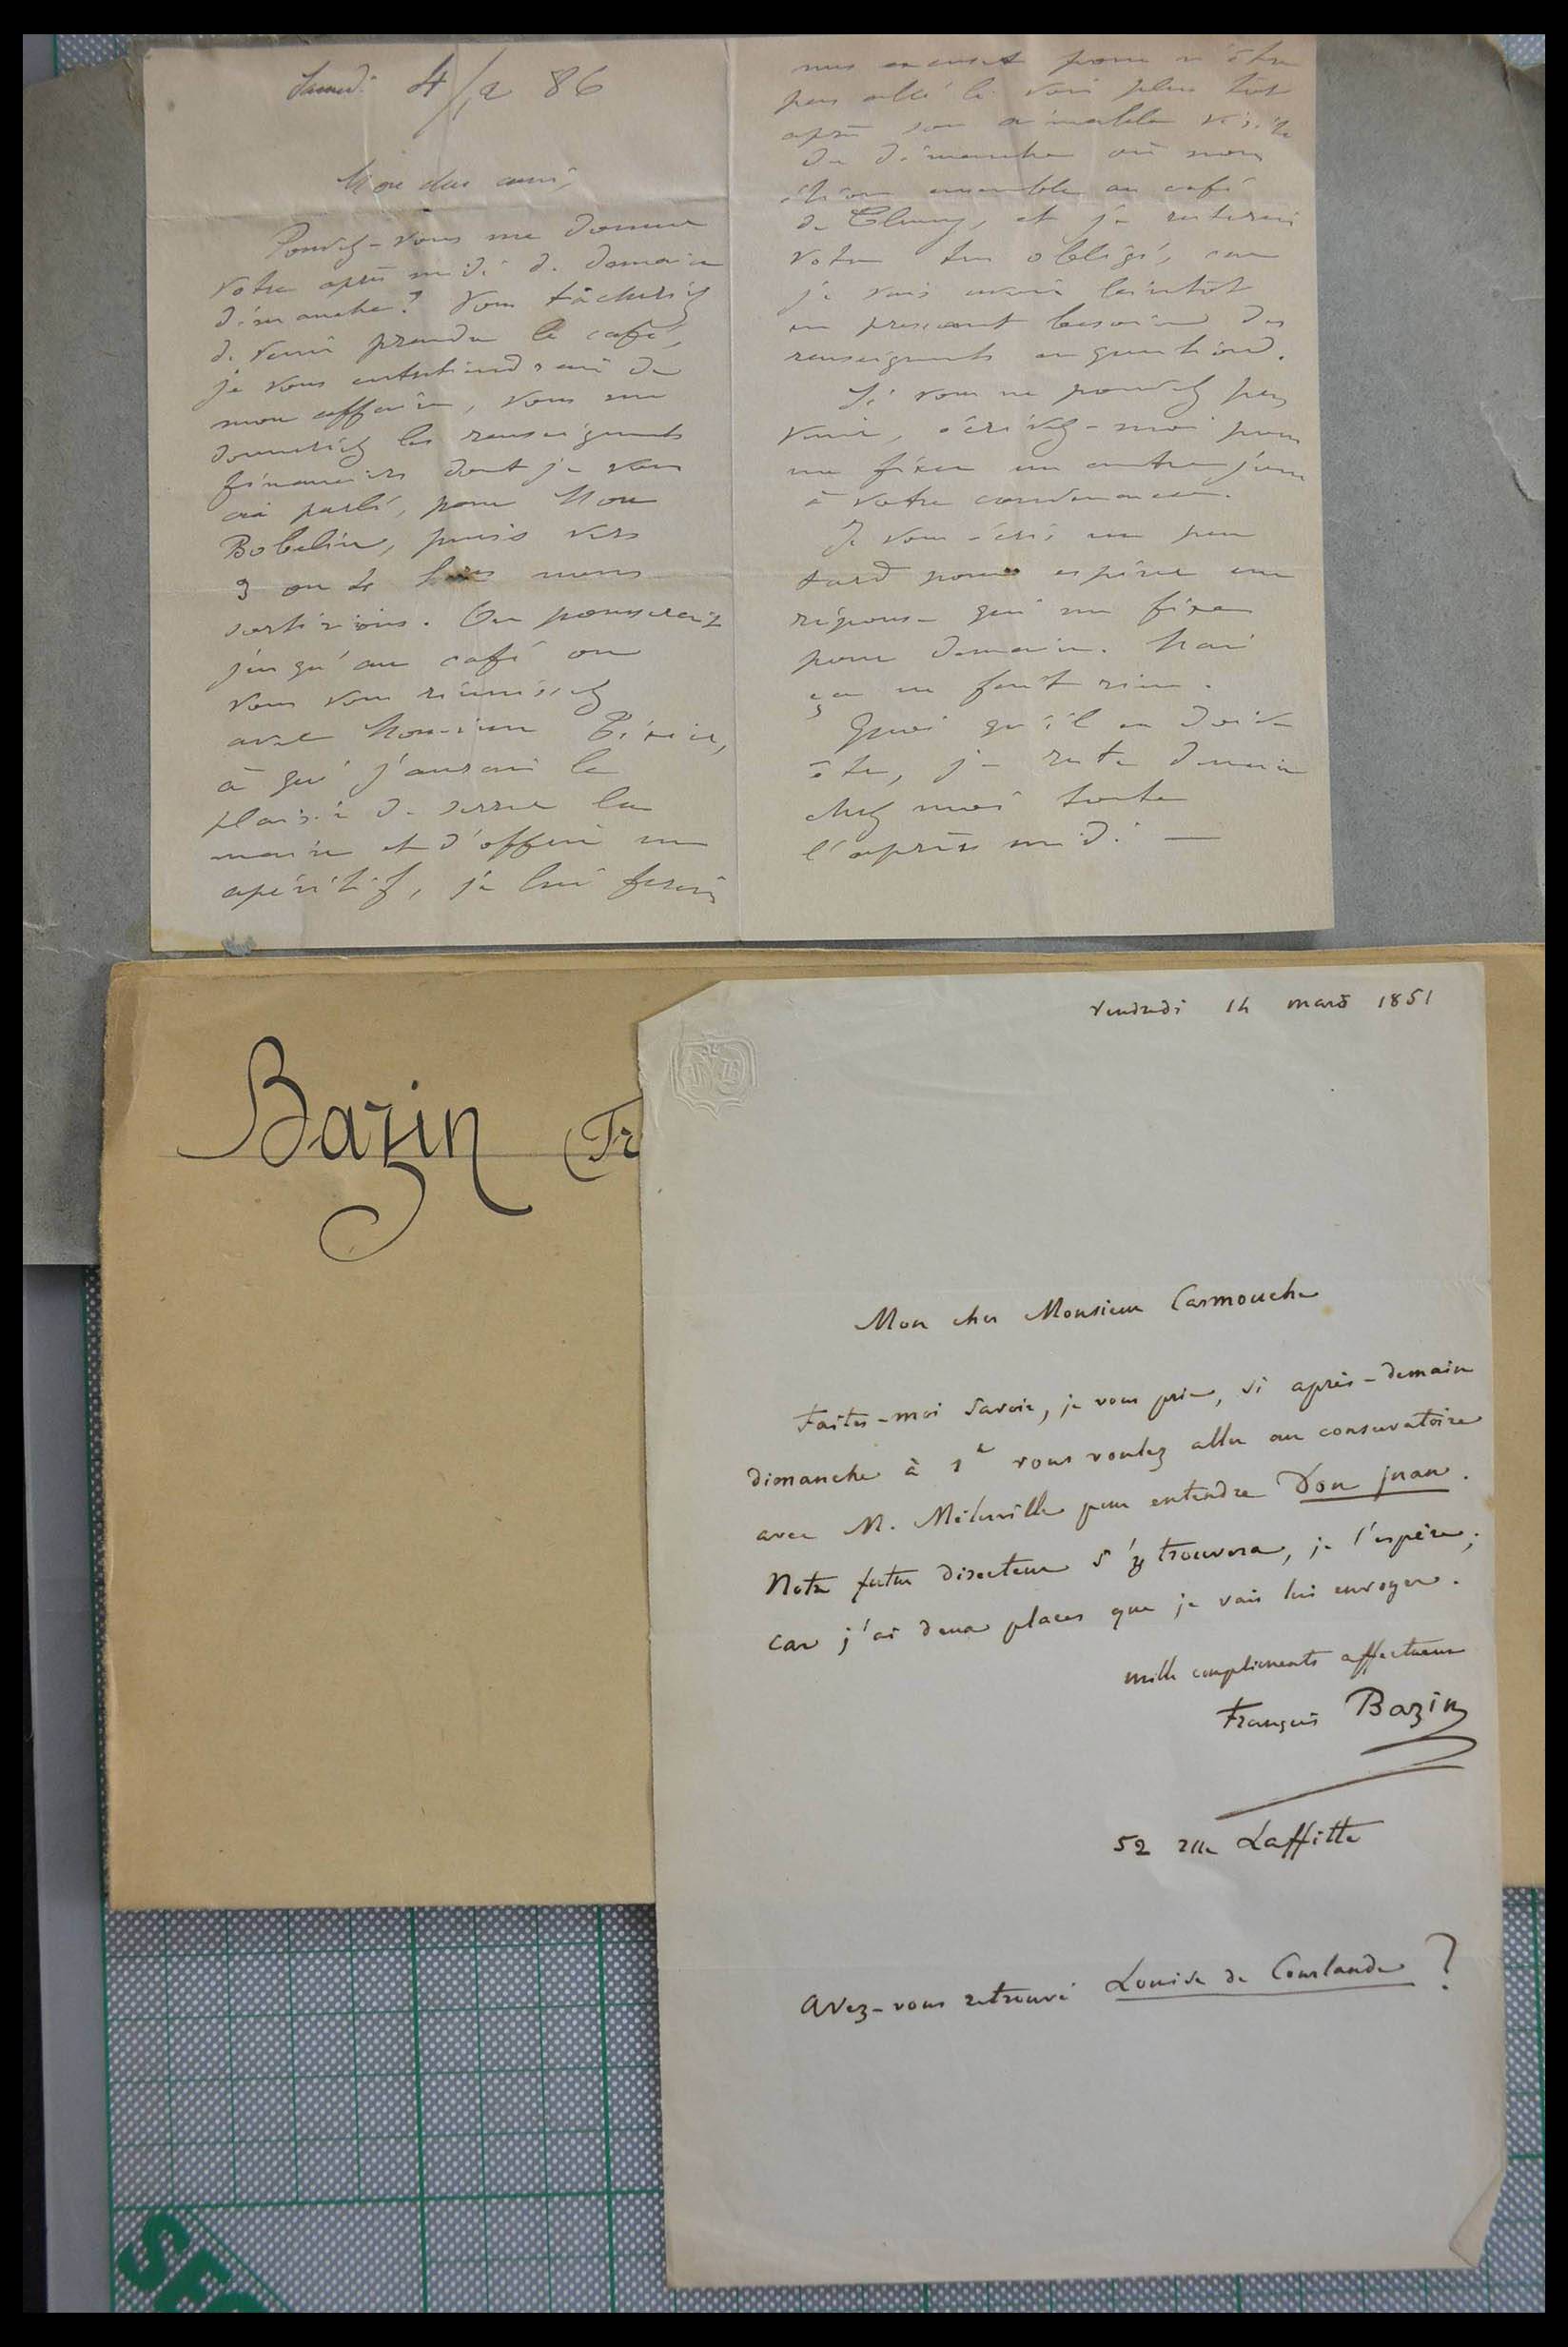 Samedi 4/12 86
Mon cher ami,
Pouvez-vous me donner
votre après midi de demain
dimanche? Vous tâcheriez
de venir prendre le café,
je vous entretiendrai de
mon affaire, vous me
donneriez les renseignments
financiers dont je vous
ai parlé, pour Mon
Bobelin, puis vers
3 ou 4 heures nous
sortirions. On pousserait
jusqu'au café où
vous vous réunissez
avec Monsieur
à qui j'aurai le
plaisir de serrer la
main et d'offrir un
apéritif, je lui ferai
mes excuses pour n'être
pas allé le voir plus tôt
après son aimable visite
du dimanche où nous
étions ensemble au café
de Cluny, et je resterai
votre très obligé, car
je vais avoir bientôt
un pressant besoin des
renseignments en question.
Si vous ne pouvez pas
venir, écrivez-moi pour
me fixer un autre jour
à votre convenance.
Je vous écris un peu
tard pour espérer une
réponse qui me fixe
pour demain. Mais
ça ne fait rien.
Quoi qu'il en doive
être, je reste demain
chez moi toute
l'après midi —
Bazin (Fr
Vendredi 14 mars 1851
Mon cher Monsieur Carmouche
Faites-moi savoir, je vous prie, si après-demain
dimanche à 1h vous voulez aller au conservatoire
avec M. Mélesville pour entendre Don juan.
Notre futur directeur s'y trouvera, je l'espère;
car j'ai deux places que je vais lui envoyer.
mille compliments affectueux
François Bazin
52 rue Laffitte
Avez-vous retrouvé Louise de Courlande?
SEC